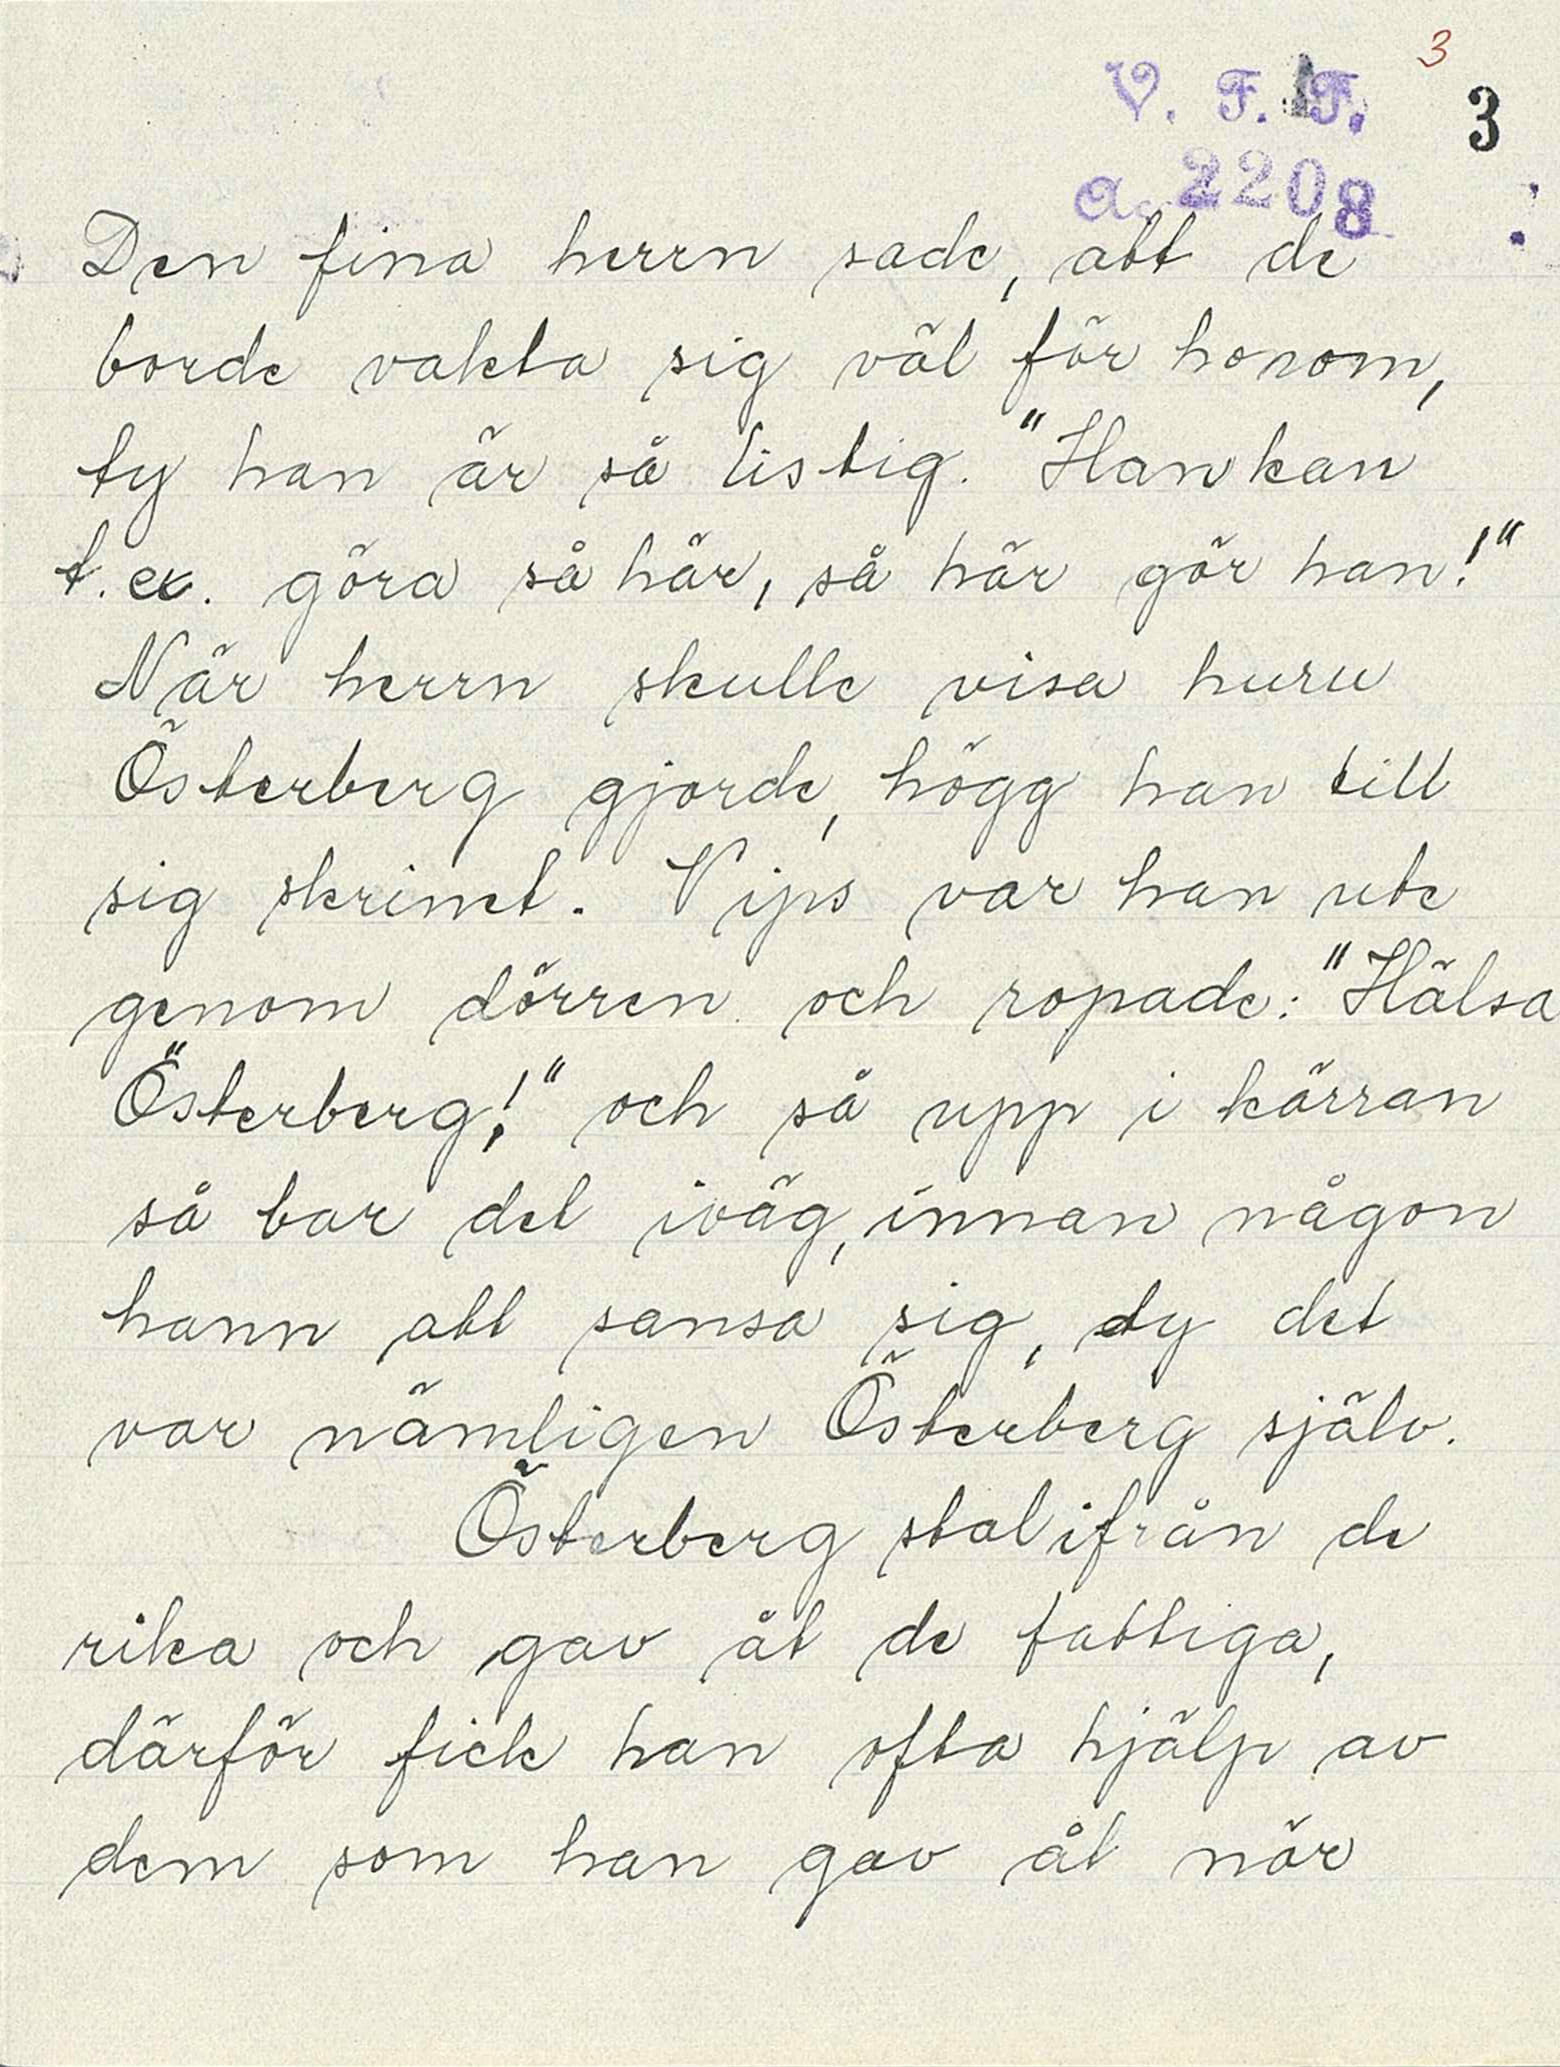 3
V. F. F.
3
a. 2208
Den fina herrn sade, att de
borde vakta sig väl för honom,
ty han är så listig. "Han kan
t. ex. göra så här, så här gör han!"
När herrn skulle visa huru
Österberg gjorde, högg han till
sig skrinet. Vips var han ute
genom dörren och ropade: "Hälsa
Österberg!" och så upp i kärran
så bar det iväg, innan någon
hann att sansa sig, ty det
var nämligen Österberg själv.
Österberg stal ifrån de
rika och gav åt de fattiga,
därför fick han ofta hjälp av
dem som han gav åt när